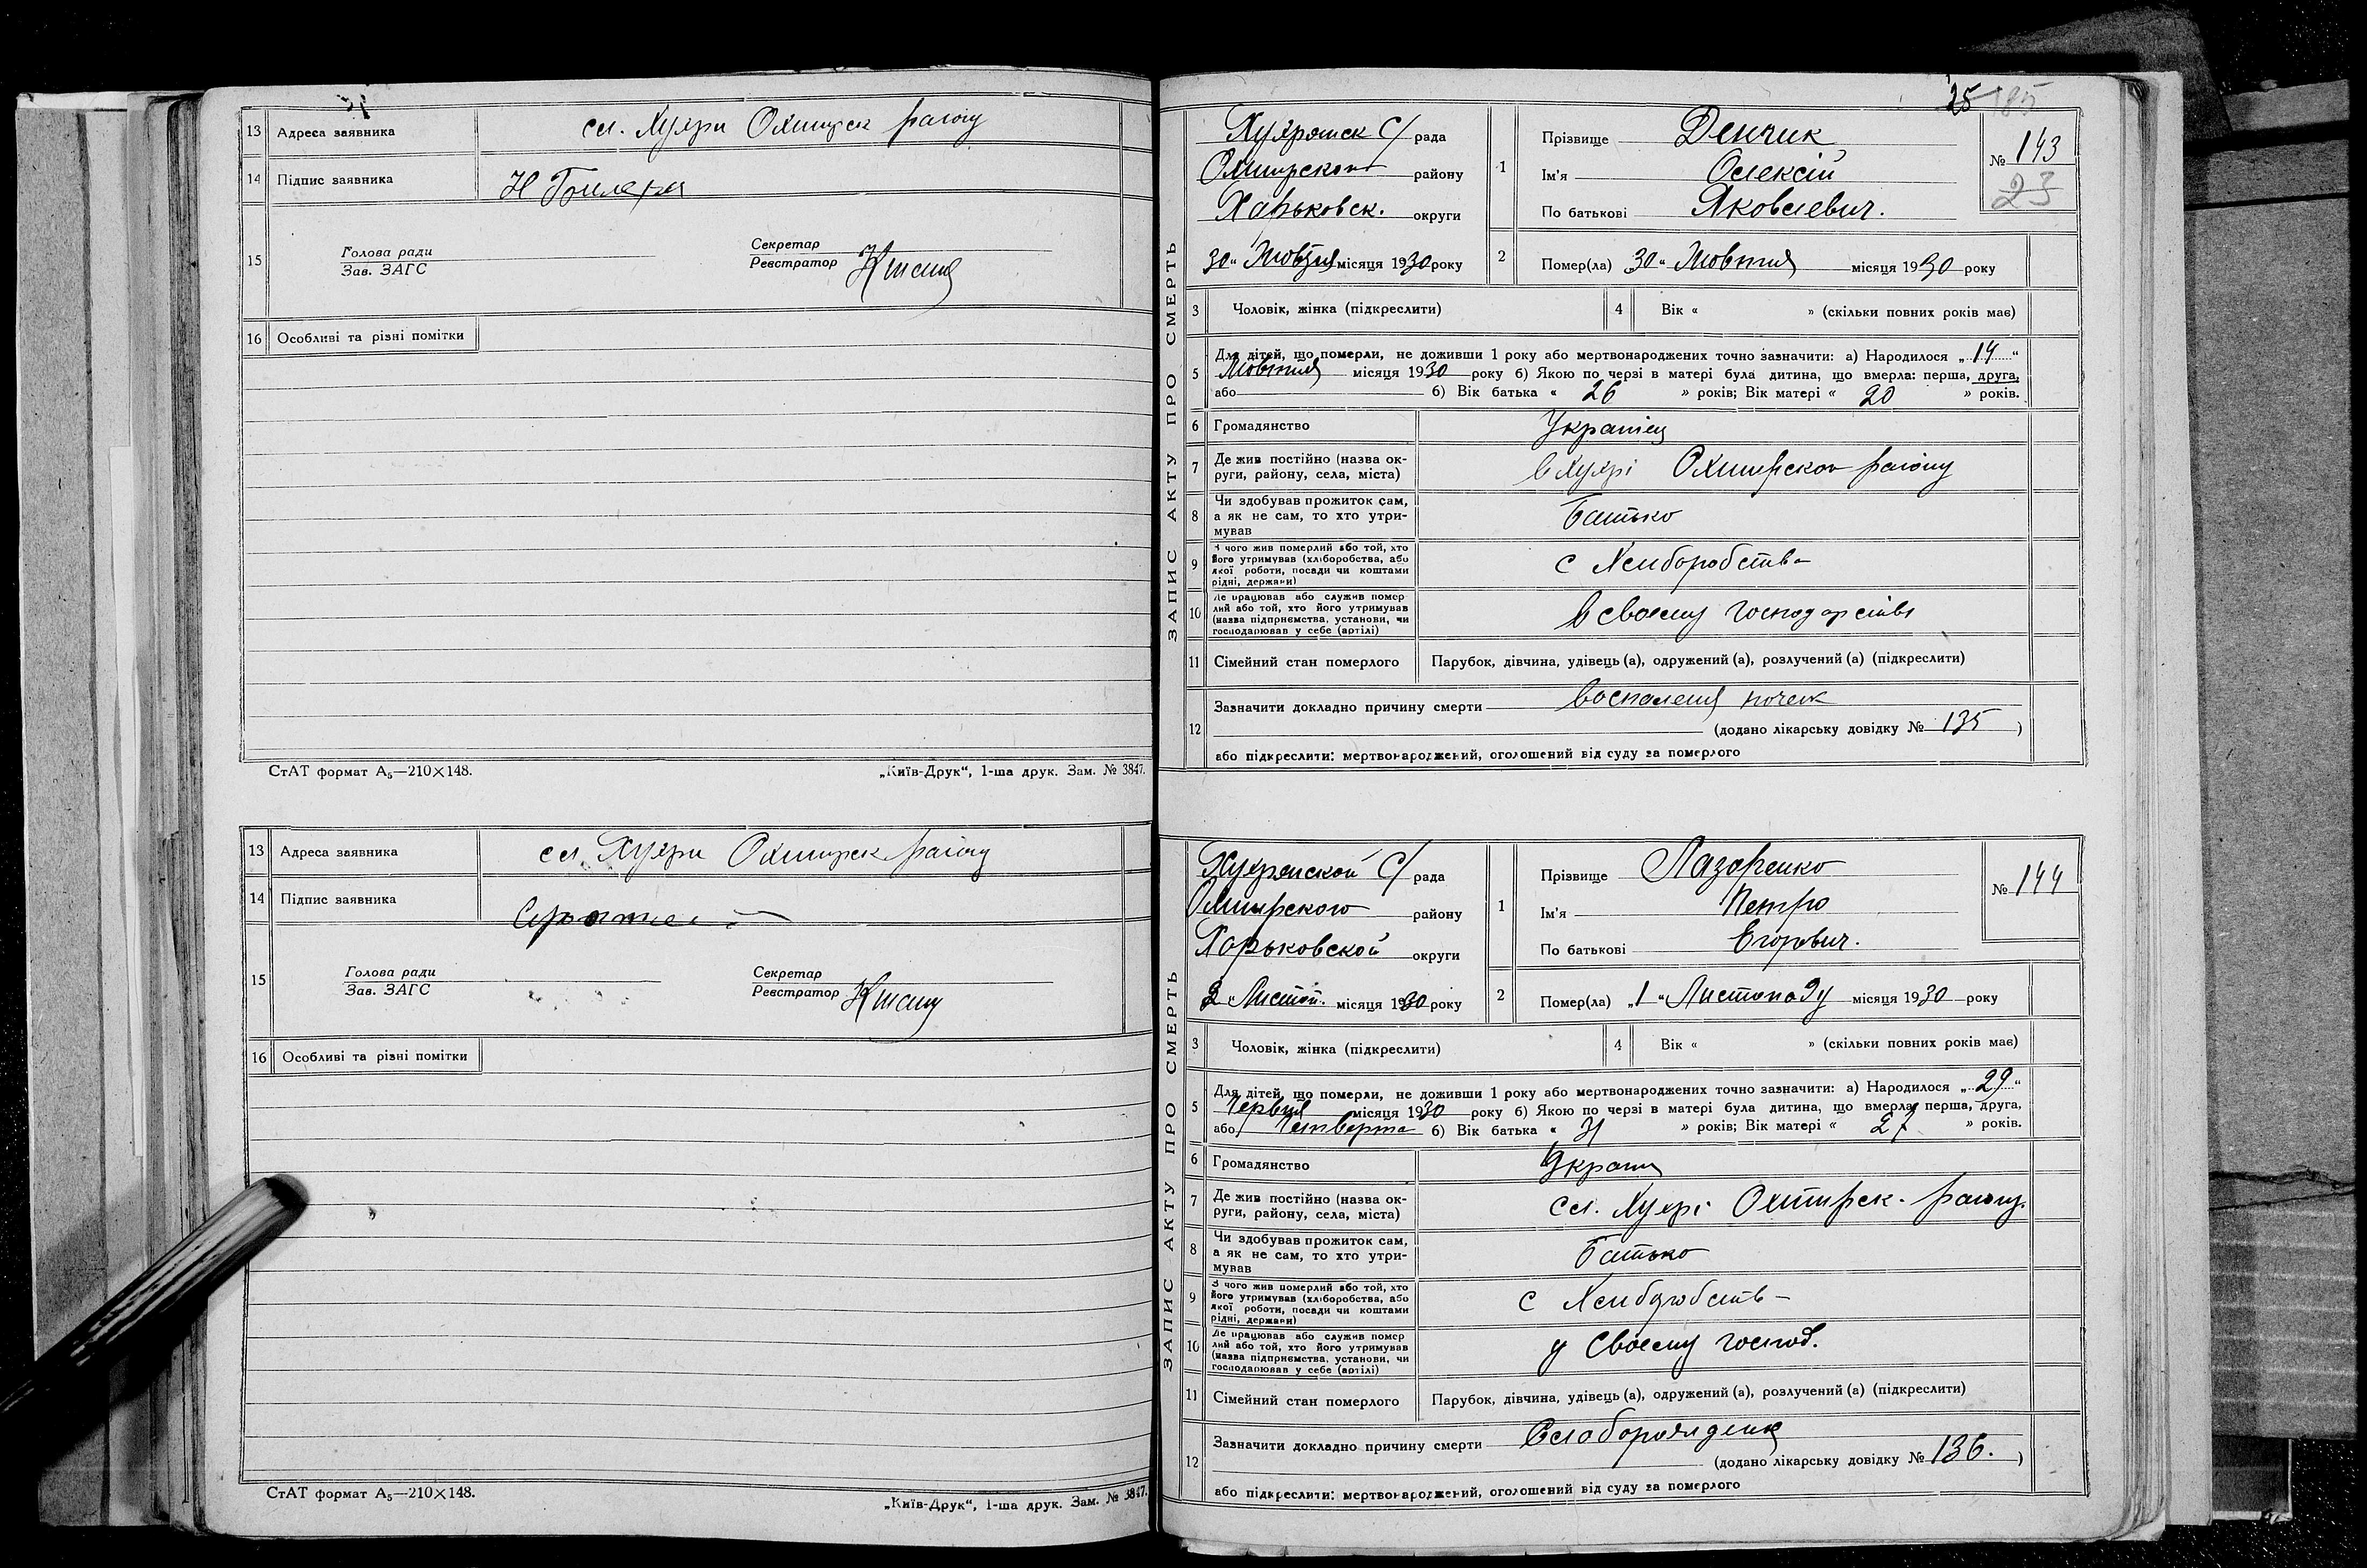 13 Адреса заявника сл. Хухри Охтирск району
14 Підпис заявника Н
15 Голова ради
Зав. ЗАГС
Секретар
Реєстратор
16 Особливі та різні помітки
СтАТ формат А₅—210×148. „Київ-Друк“, 1-ша друк. Зам. № 3847.
13 Адреса заявника сл. Хухри Охтирск району
14 Підпис заявника
15 Голова ради
Зав. ЗАГС
Секретар
Реєстратор
16 Особливі та різні помітки
СтАТ формат А₅—210×148. „Київ-Друк“, 1-ша друк. Зам. № 3847.
25 185
ЗАПИС АКТУ ПРО СМЕРТЬ
Хухрянск С/рада
Охтирского району
Харьковск. округи
30 „ Жовтня місяця 1930 року
1 Прізвище Денчик
Ім'я Олексій
По батькові Яковлевич.
№ 143
23
2 Помер(ла) „30“ Жовтня місяця 1930 року
3 Чоловік, жінка (підкреслити) 4 Вік « » (скільки повних років має)
5 Для дітей, що померли, не доживши 1 року або мертвонароджених точно зазначити: а) Народилося „14“
Жовтня місяця 1930 року б) Якою по черзі в матері була дитина, що вмерла: перша, друга,
або б) Вік батька « 26 » років; Вік матері « 20 » років.
6 Громадянство Українець
7 Де жив постійно (назва ок-
руги, району, села, міста) в Хухрі Охтирского району
8 Чи здобував прожиток сам,
а як не сам, то хто утри-
мував Батько
9 З чого жив померлий або той, хто
його утримував (хліборобства, або
якої роботи, посади чи коштами
рідні, держави) с Хлиборобства
10 Де працював або служив помер
лий або той, хто його утримував
(назва підприємства, установи, чи
господарював у себе (артілі) в своему господарстві
11 Сімейний стан померлого Парубок, дівчина, удівець (а), одружений (а), розлучений (а) (підкреслити)
12 Зазначити докладно причину смерти Воспаления почек
(додано лікарську довідку № 135 )
або підкреслити: мертвонароджений, оголошений від суду за померлого
ЗАПИС АКТУ ПРО СМЕРТЬ
Хухрянской С/рада
Охтирского району
Харьковской округи
2 Листоп. місяця 1930 року
1 Прізвище Лазоренко
Ім'я Петро
По батькові Егорович.
№ 144
2 Помер(ла) „1“ Листопаду місяця 1930 року
3 Чоловік, жінка (підкреслити) 4 Вік « » (скільки повних років має)
5 Для дітей, що померли, не доживши 1 року або мертвонароджених точно зазначити: а) Народилося „29“
Червня місяця 1930 року б) Якою по черзі в матері була дитина, що вмерла: перша, друга,
або Четверта б) Вік батька « 31 » років; Вік матері « 27 » років.
6 Громадянство
7 Де жив постійно (назва ок-
руги, району, села, міста) сл. Хухрі Охтирск. району.
8 Чи здобував прожиток сам,
а як не сам, то хто утри-
мував Батько
9 З чого жив померлий або той, хто
його утримував (хліборобства, або
якої роботи, посади чи коштами
рідні, держави) с Хлиборобств
10 Де працював або служив помер
лий або той, хто його утримував
(назва підприємства, установи, чи
господарював у себе (артілі) у своему господ.
11 Сімейний стан померлого Парубок, дівчина, удівець (а), одружений (а), розлучений (а) (підкреслити)
12 Зазначити докладно причину смерти
(додано лікарську довідку № 136. )
або підкреслити: мертвонароджений, оголошений від суду за померлого